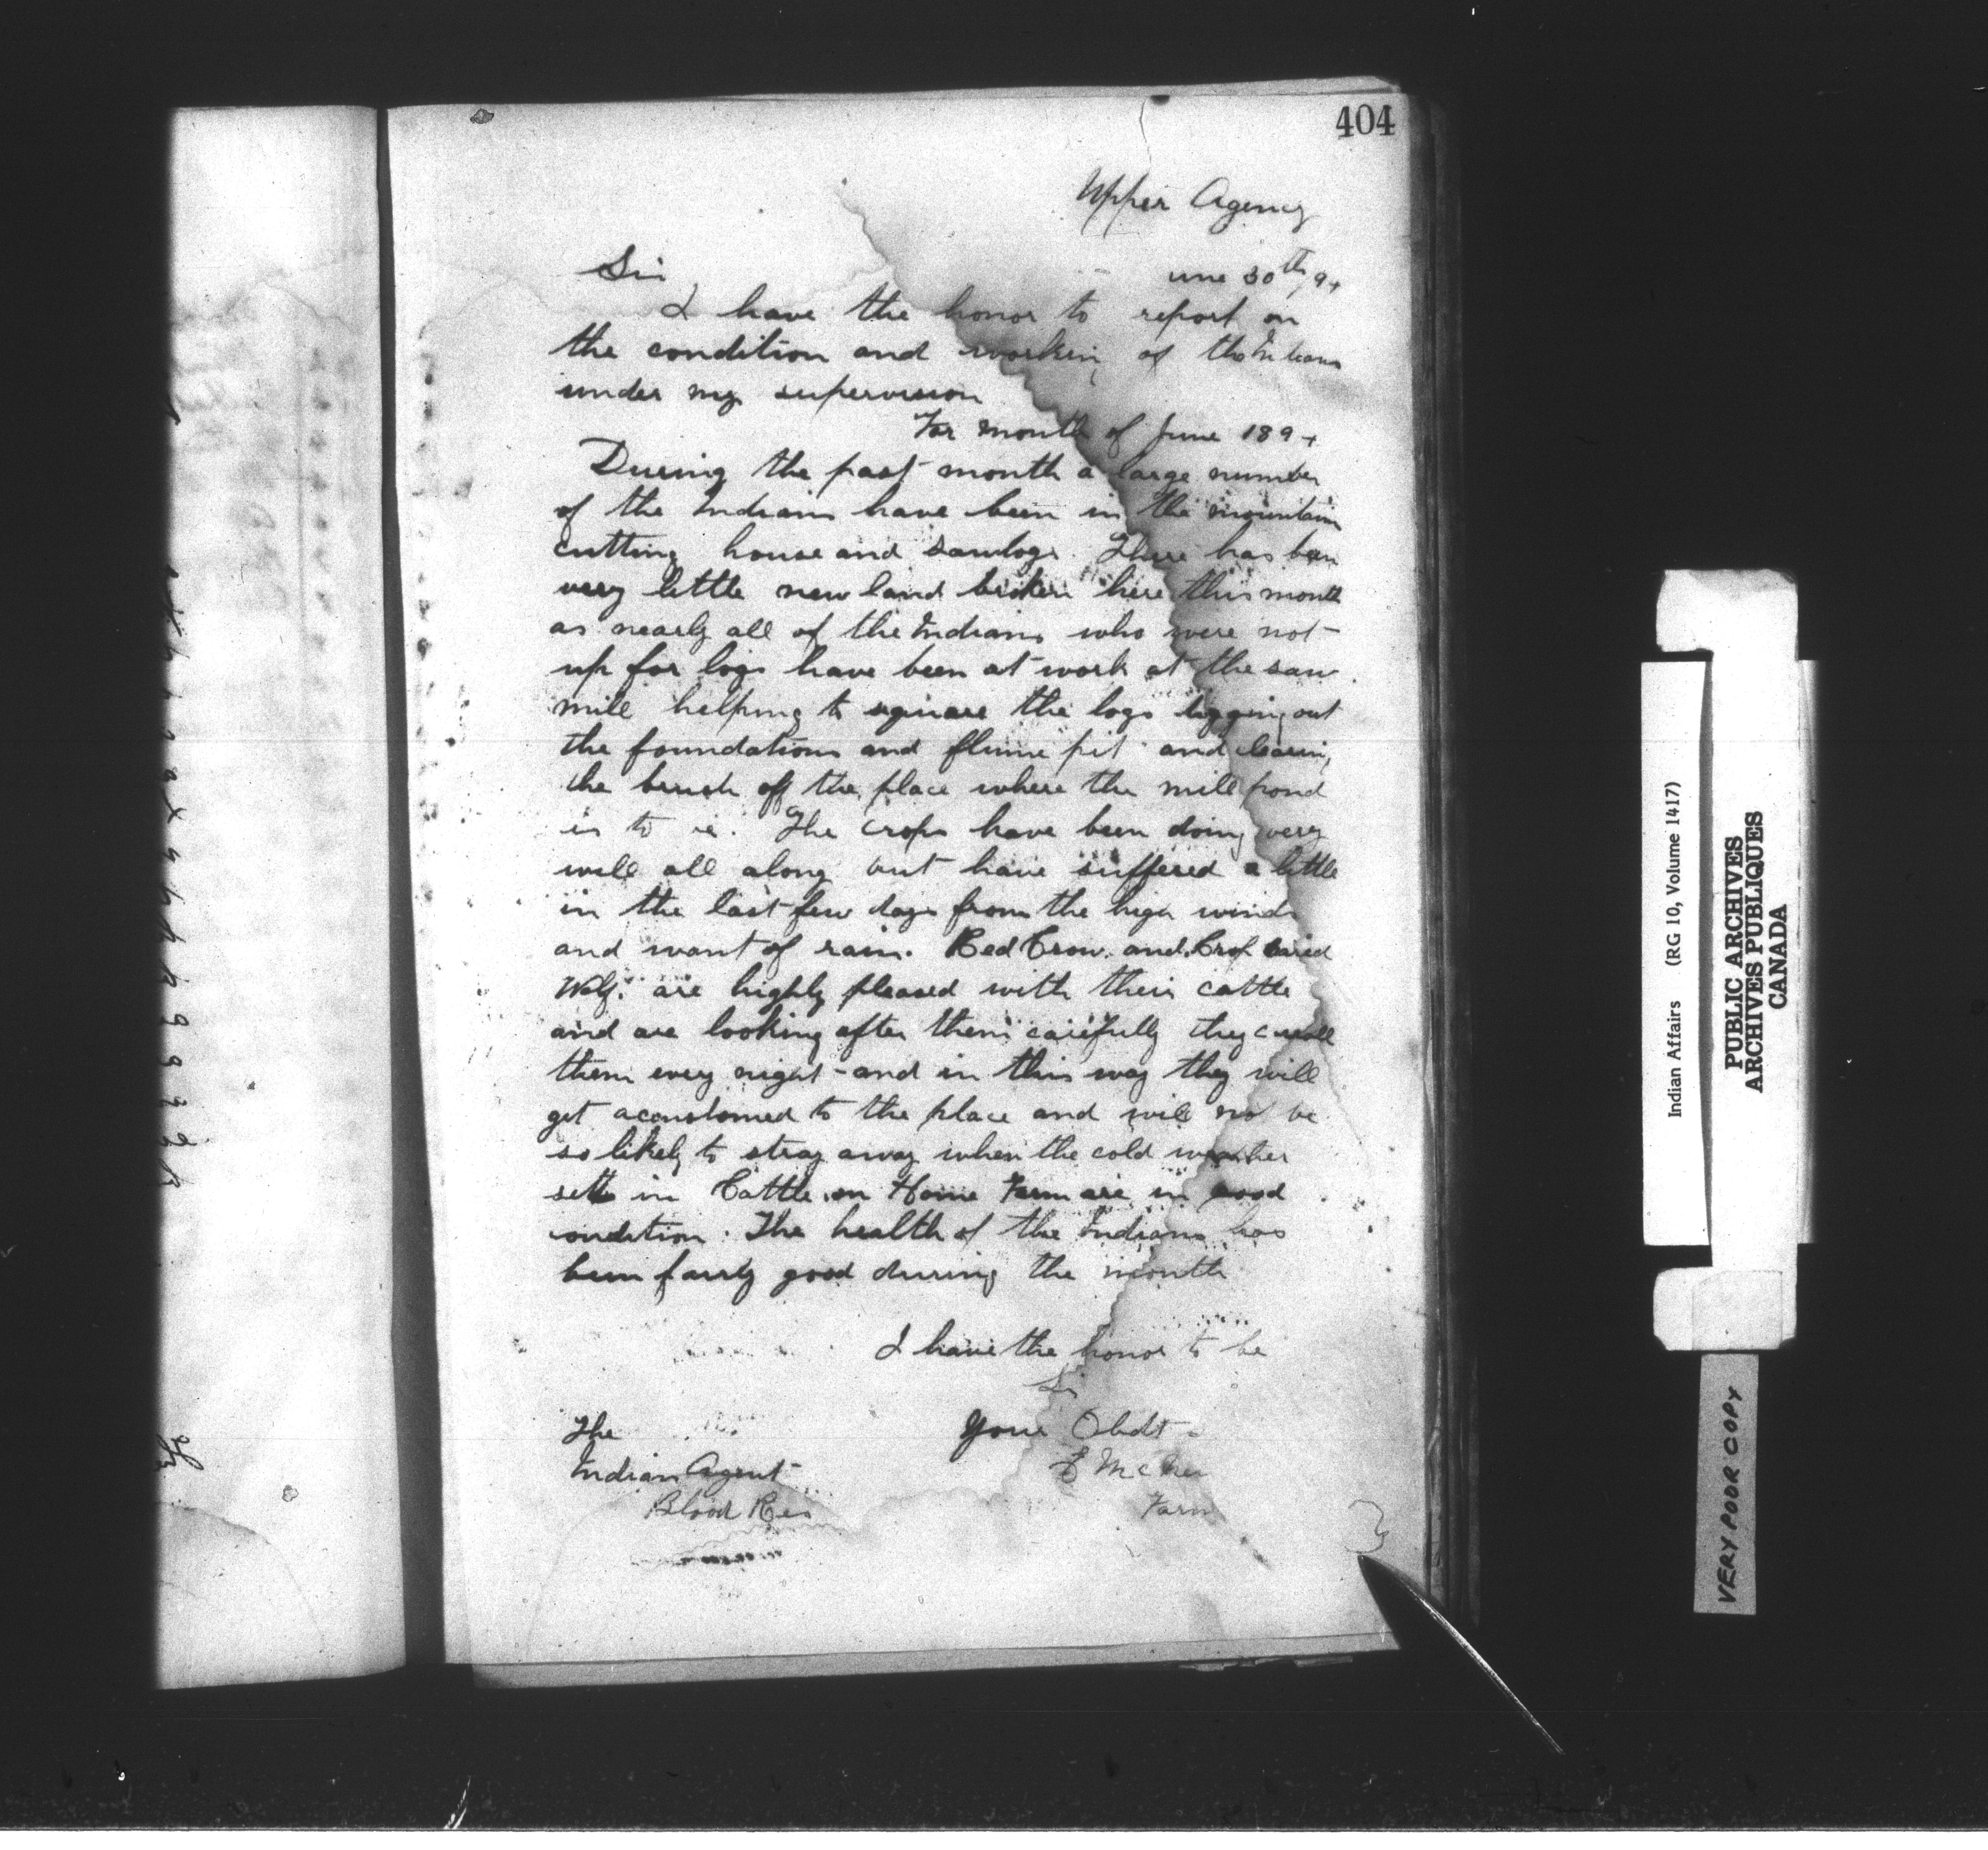 404
Upper Agency
Sir
une 30th, 94
I have the honor to report on
the condition and workin of the Indians
under my supervision
For month of June 1894
During the past month a large number
of the Indians have been in the mountains
cutting house and sawlogs. There has been
very little new land broken here this month
as nearly all of the Indians who were not
up for logs have been at work at the saw
mill helping to square the logs digging out
the foundations and flume pit and clearing
the brush off the place where the mill pond
is to be. The crops have been doing very
well all along but have suffered a little
in the last few days from the high winds
and want of rain. Red Crow and Crop Eared
Wolf are highly pleased with their cattle
and are looking after them carefully they corall
them every night and in this way they will
get accustomed to the place and will not be
so likely to stray away when the cold weather
sets in Cattle on Home Farm are in good
condition. The health of the Indians has
been fairly good during the month
I have the honor to be
Sir
Your Obdt
The
Indian Agent
Blood Res
Farm
Indian Affairs (RG 10, Volume 1417)
PUBLIC ARCHIVES
ARCHIVES PUBLIQUES
CANADA
VERY POOR COPY